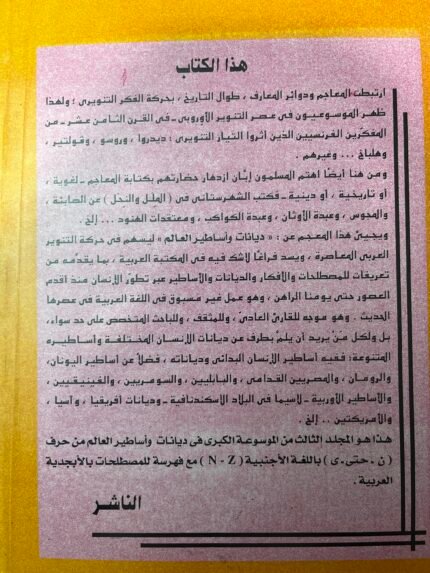 هذا الكتاب
ارتبطت المعاجم ودوائر المعارف ، طوال التاريخ ، بحركة الفكر التنويرى ؛ ولهذا
ظهر الموسوعيون فى عصر التنوير الأوروبى ـ فى القرن الثامن عشر ـ من
المفكرين الفرنسيين الذين أثروا التيار التنويرى : ديدروا ، وروسو ، وفولتير ،
وهلباخ ... وغيرهم .
ومن هنا أيضًا اهتم المسلمون إبّان ازدهار حضارتهم بكتابة المعاجم ـ لغوية ،
أو تاريخية ، أو دينية ـ فكتب الشهرستانى فى ( الملل والنحل ) عن الصابئة ،
والمجوس ، وعبدة الأوثان ، وعبدة الكواكب ، ومعتقدات الهنود ... إلخ .
ويجيئ هذا المعجم عن : « ديانات وأساطير العالم » ليسهم فى حركة التنوير
العربى المعاصرة ، ويسد فراغًا لاشك فيه فى المكتبة العربية ، بما يقدمه من
تعريفات للمصطلحات والأفكار والديانات والأساطير عبر تطوّر الإنسان منذ أقدم
العصور حتى يومنا الراهن ، وهو عمل غير مسبوق فى اللغة العربية فى عصرها
الحديث . وهو موجه للقارئ العادى ، وللمثقف ، وللباحث المتخصص على حد سواء،
بل ولكل من يريد أن يلمّ بطرف من ديانات الإنسان المختلفة وأساطيره
المتنوعة: ففيه أساطير الإنسان البدائى ودياناته ، فضلاً عن أساطير اليونان،
والرومان ، والمصريين القدامى ، والبابليين ، والسومريين ، والفينيقيين ،
والأساطير الأوربية ـ لاسيما فى البلاد الاسكندنافية ـ وديانات أفريقيا ، وآسيا ،
والأمريكتين .. إلخ .
هذا هو المجلد الثالث من الموسوعة الكبرى فى ديانات وأساطير العالم من حرف
( ن ـ حتى ـ ى ) باللغة الأجنبية ( N - Z ) مع فهرسة للمصطلحات بالأبجدية
العربية .
الناشر